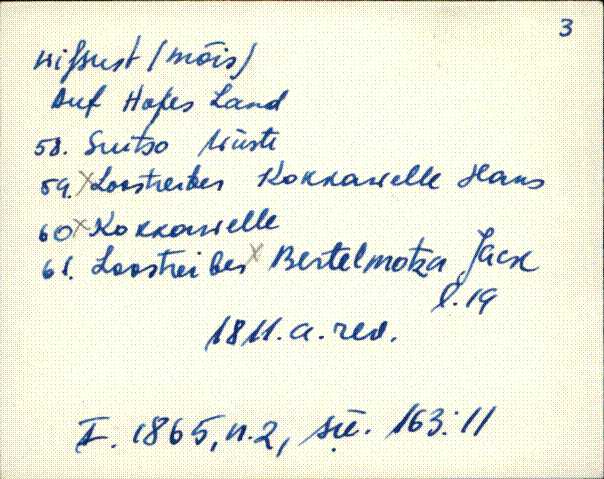 3
Wissust (mõis)
Auf Hofes Land
58. Suitso Wüste
59. x Lostreiber Kokkawelle Hans
60 x Kokkawelle
61. Lostreiber x Bertelmotza Jack
l. 19
1811. a. rev.
F. 1865, n. 2, sü. 163:11